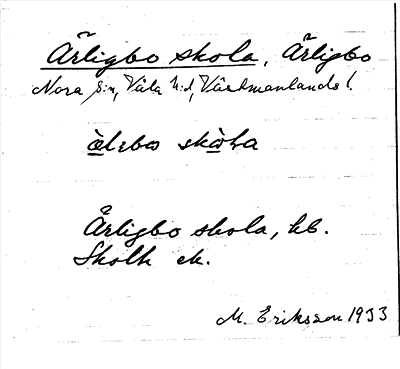 Ärligbo skola, Ärligbo
Nora sn, Våla hd, Västmanlands l.
skola
Ärligbo skola, hb.
Skolh ek.
M. Eriksson 1933